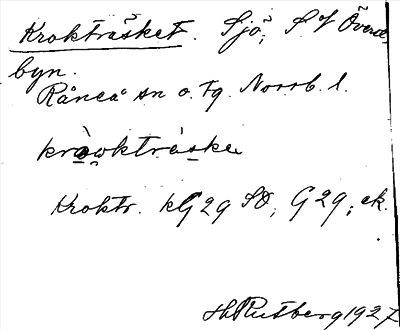 Krokträsket. Sjö, S V Överst-
byn.
Råneå sn o. tg. Norrb. l.
kròo̯kträ́ske
Kroktr. kG29 SO, G29; ek.
H Rutberg 1927